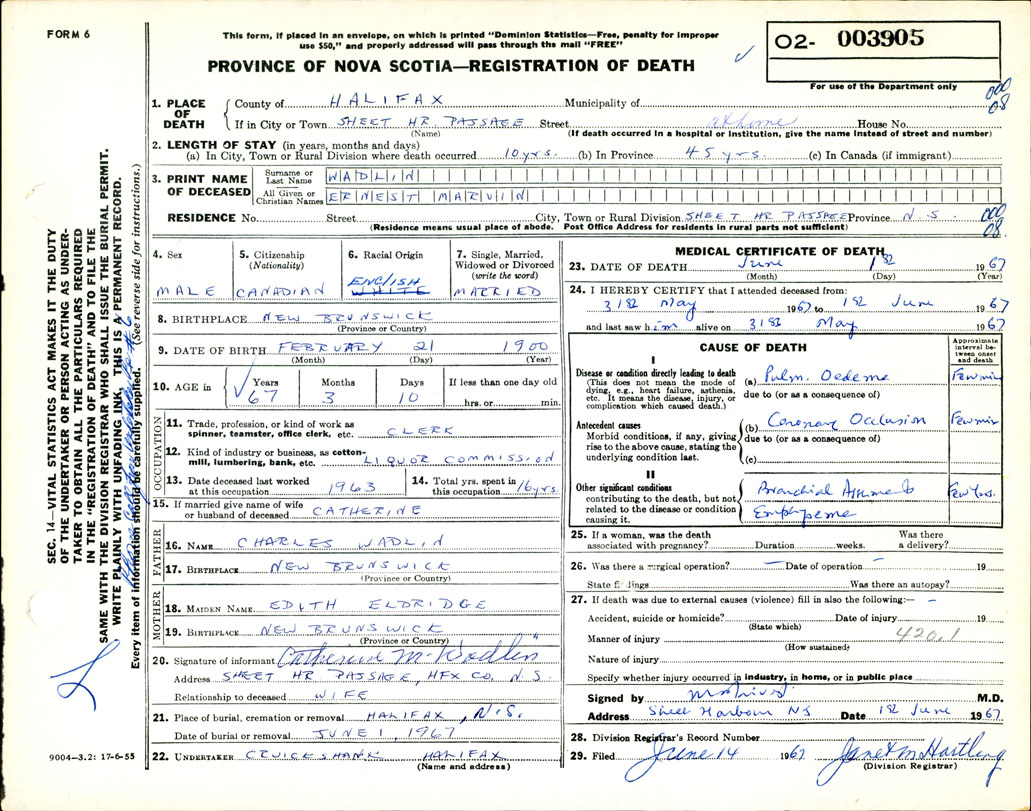 FORM 6
This form, if placed in an envelope, on which is printed "Dominion Statistics—Free, penalty for improper
use $50," and properly addressed will pass through the mail "FREE"
PROVINCE OF NOVA SCOTIA—REGISTRATION OF DEATH
02- 003905
For use of the Department only
000
08
1. PLACE OF DEATH
County of HALIFAX Municipality of
If in City or Town SHEET HR. PASSAGE Street at home House No.
(Name) (If death occurred in a hospital or institution, give the name instead of street and number)
2. LENGTH OF STAY (in years, months and days)
(a) In City, Town or Rural Division where death occurred 10 yrs. (b) In Province 45 yrs. (c) In Canada (if immigrant)
3. PRINT NAME OF DECEASED
Surname or Last Name WADLIN
All Given or Christian Names ERNEST MARVIN
RESIDENCE No. Street City, Town or Rural Division SHEET HR PASSAGE Province N.S.
000
08.
(Residence means usual place of abode. Post Office Address for residents in rural parts not sufficient)
4. Sex
MALE
5. Citizenship
(Nationality)
CANADIAN
6. Racial Origin
ENGLISH
WHITE
7. Single, Married,
Widowed or Divorced
(write the word)
MARRIED
8. BIRTHPLACE NEW BRUNSWICK
(Province or Country)
9. DATE OF BIRTH FEBRUARY 21 1900
(Month) (Day) (Year)
10. AGE in Years Months Days If less than one day old
67 3 10 hrs. or min.
OCCUPATION
11. Trade, profession, or kind of work as
spinner, teamster, office clerk, etc. CLERK
12. Kind of industry or business, as cotton-
mill, lumbering, bank, etc. LIQUOR COMMISSION
13. Date deceased last worked
at this occupation 1963
14. Total yrs. spent in
this occupation 16 yrs.
15. If married give name of wife
or husband of deceased CATHERINE
FATHER
16. NAME CHARLES WADLIN
17. BIRTHPLACE NEW BRUNSWICK
(Province or Country)
MOTHER
18. MAIDEN NAME EDITH ELDRIDGE
19. BIRTHPLACE NEW BRUNSWICK
(Province or Country)
20. Signature of informant Catherine M. Wadlin
Address SHEET HR PASSAGE, HFX CO, N.S.
Relationship to deceased WIFE
21. Place of burial, cremation or removal HALIFAX, N.S.
Date of burial or removal JUNE 1, 1967
22. UNDERTAKER CRUICKSHANK HALIFAX
(Name and address)
MEDICAL CERTIFICATE OF DEATH
23. DATE OF DEATH June 1st 1967
(Month) (Day) (Year)
24. I HEREBY CERTIFY that I attended deceased from:
31st May 1967 to 1st June 1967
and last saw him alive on 31st May 1967
CAUSE OF DEATH
Approximate interval between onset and death
I
Disease or condition directly leading to death
(This does not mean the mode of
dying, e.g., heart failure, asthenia,
etc. It means the disease, injury, or
complication which caused death.)
(a) Pulm. Oedema Few min
due to (or as a consequence of)
Antecedent causes
Morbid conditions, if any, giving
rise to the above cause, stating the
underlying condition last.
(b) Coronary Occlusion Few min
due to (or as a consequence of)
(c)
II
Other significant conditions
contributing to the death, but not
related to the disease or condition
causing it.
Bronchial Asthma &
Few Yrs.
25. If a woman, was the death
associated with pregnancy? Duration weeks. Was there
a delivery?
26. Was there a surgical operation? – Date of operation – 19
State findings Was there an autopsy?
27. If death was due to external causes (violence) fill in also the following:— –
Accident, suicide or homicide? Date of injury 19
(State which)
Manner of injury 420.1
(How sustained)
Nature of injury
Specify whether injury occurred in industry, in home, or in public place
Signed by M.D.
Address Sheet Harbour NS Date 1st June 1967
28. Division Registrar's Record Number
29. Filed June 14 1967 Janet M Hartling
(Division Registrar)
SEC. 14—VITAL STATISTICS ACT MAKES IT THE DUTY
OF THE UNDERTAKER OR PERSON ACTING AS UNDER-
TAKER TO OBTAIN ALL THE PARTICULARS REQUIRED
IN THE "REGISTRATION OF DEATH" AND TO FILE THE
SAME WITH THE DIVISION REGISTRAR WHO SHALL ISSUE THE BURIAL PERMIT.
WRITE PLAINLY WITH UNFADING INK. THIS IS A PERMANENT RECORD.
Every item of information should be carefully supplied. (See reverse side for instructions.)
9004—3.2: 17-6-55